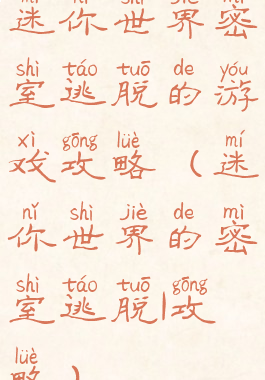 mí nǐ shì jiè mì
迷你世界密
shì táo tuō de yóu
室逃脱的游
xì gōng lüè mí
戏攻略（迷
nǐ shì jiè de mì
你世界的密
shì táo tuō gōng
室逃脱|攻
lüè
略）